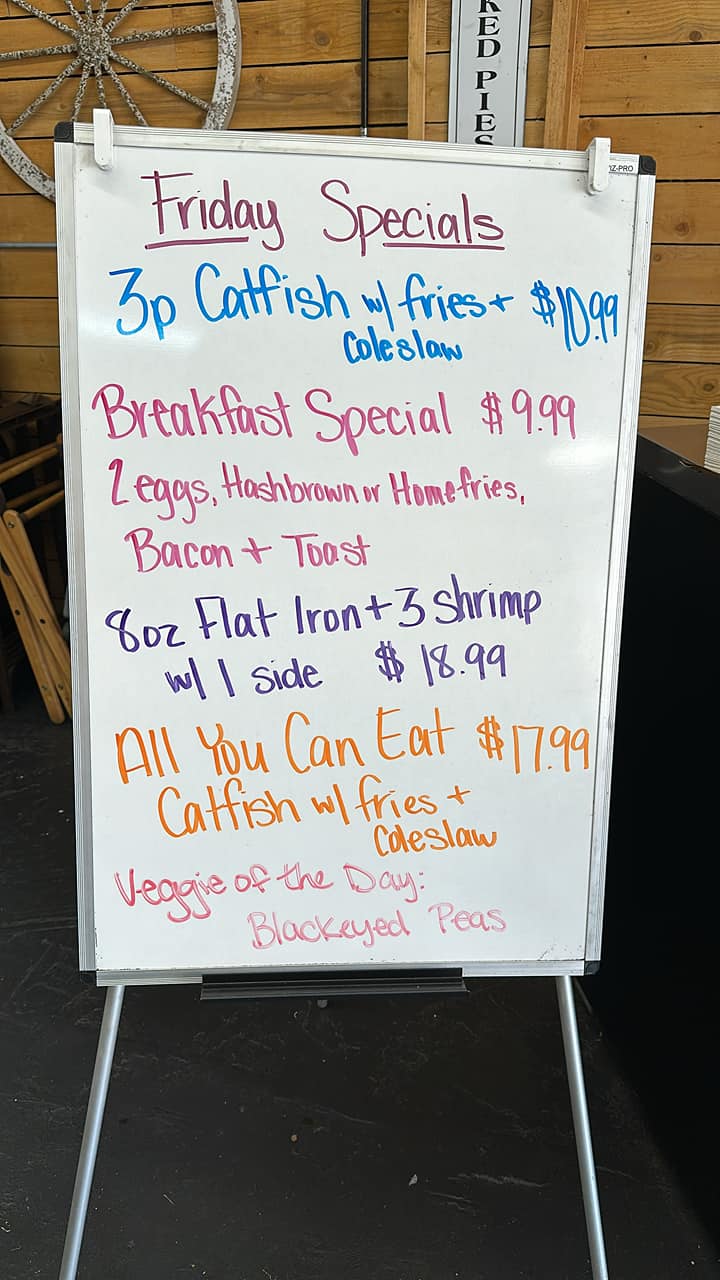 KED PIES
IZ-PRO
Friday Specials
3p Catfish w/ fries + $10.99
Coleslaw
Breakfast Special $9.99
2eggs, Hashbrown or Homefries,
Bacon + Toast
8oz Flat Iron + 3 shrimp
w/ 1 side $18.99
All You Can Eat $17.99
Catfish w/ fries +
Coleslaw
Veggie of the Day:
Blackeyed Peas